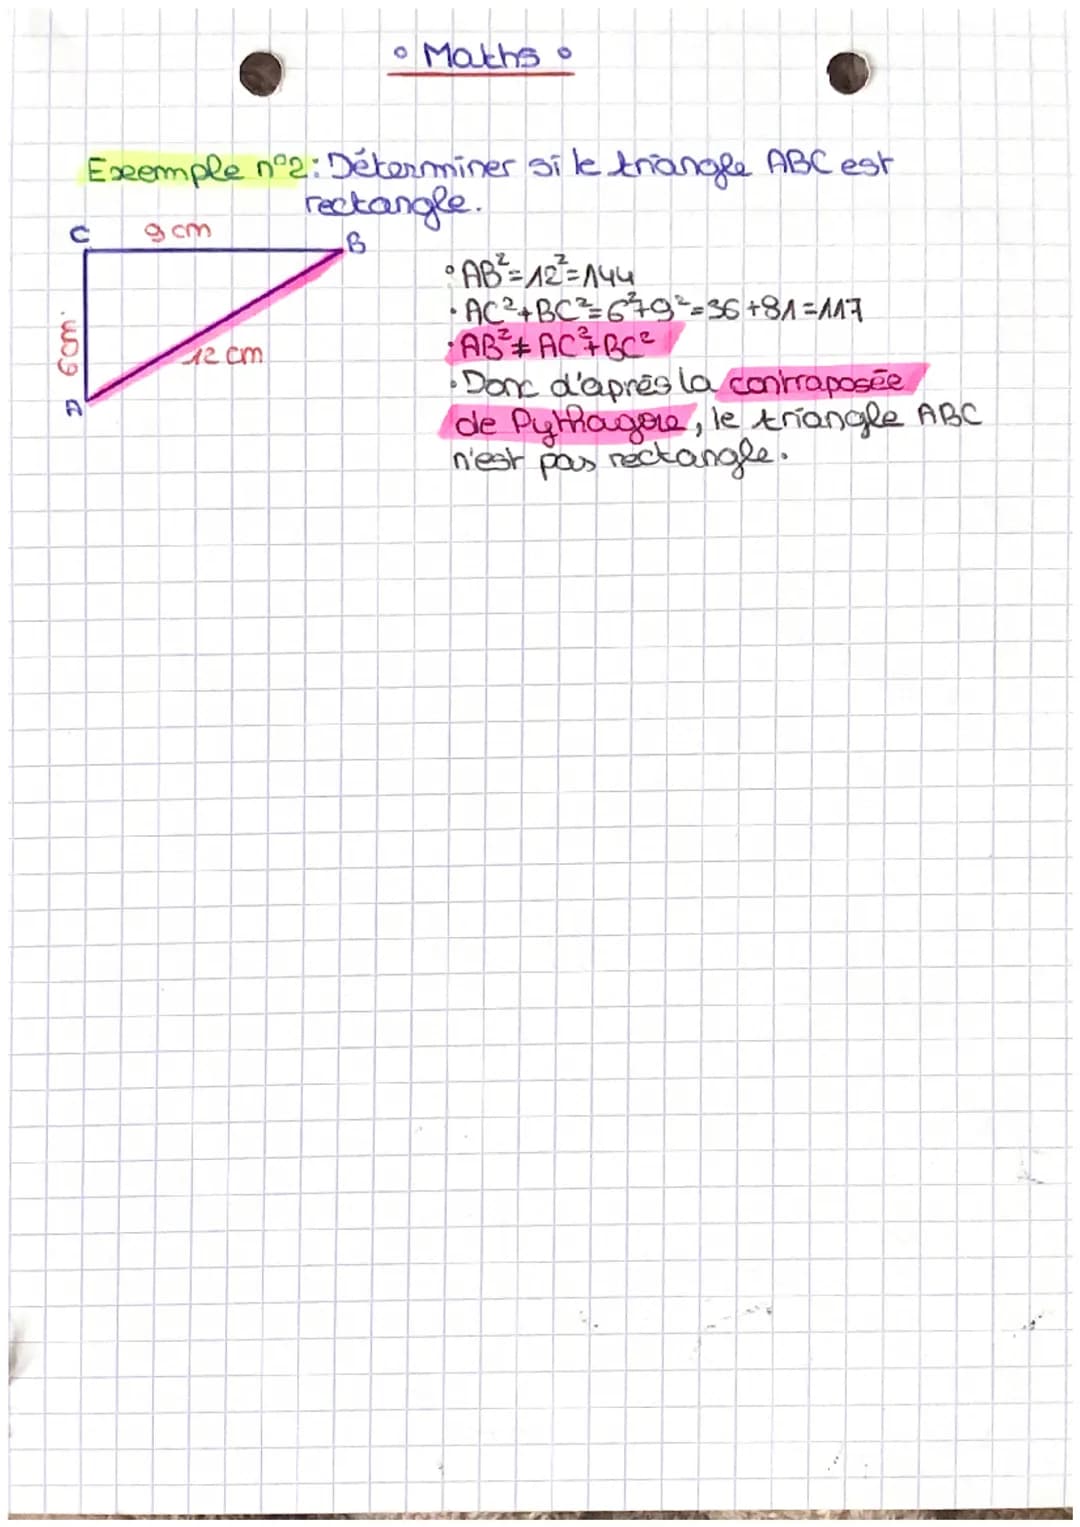 ° Maths °
Exemple n°2: Déterminer si le triangle ABC est
rectangle.
C 9 cm B
6cm
12 cm
A
° AB²=12²=144
· AC²+BC²=6²+9²=36+81=117
· AB²≠AC²+BC²
· Donc d'après la contraposée
de Pythagore, le triangle ABC
n'est pas rectangle.